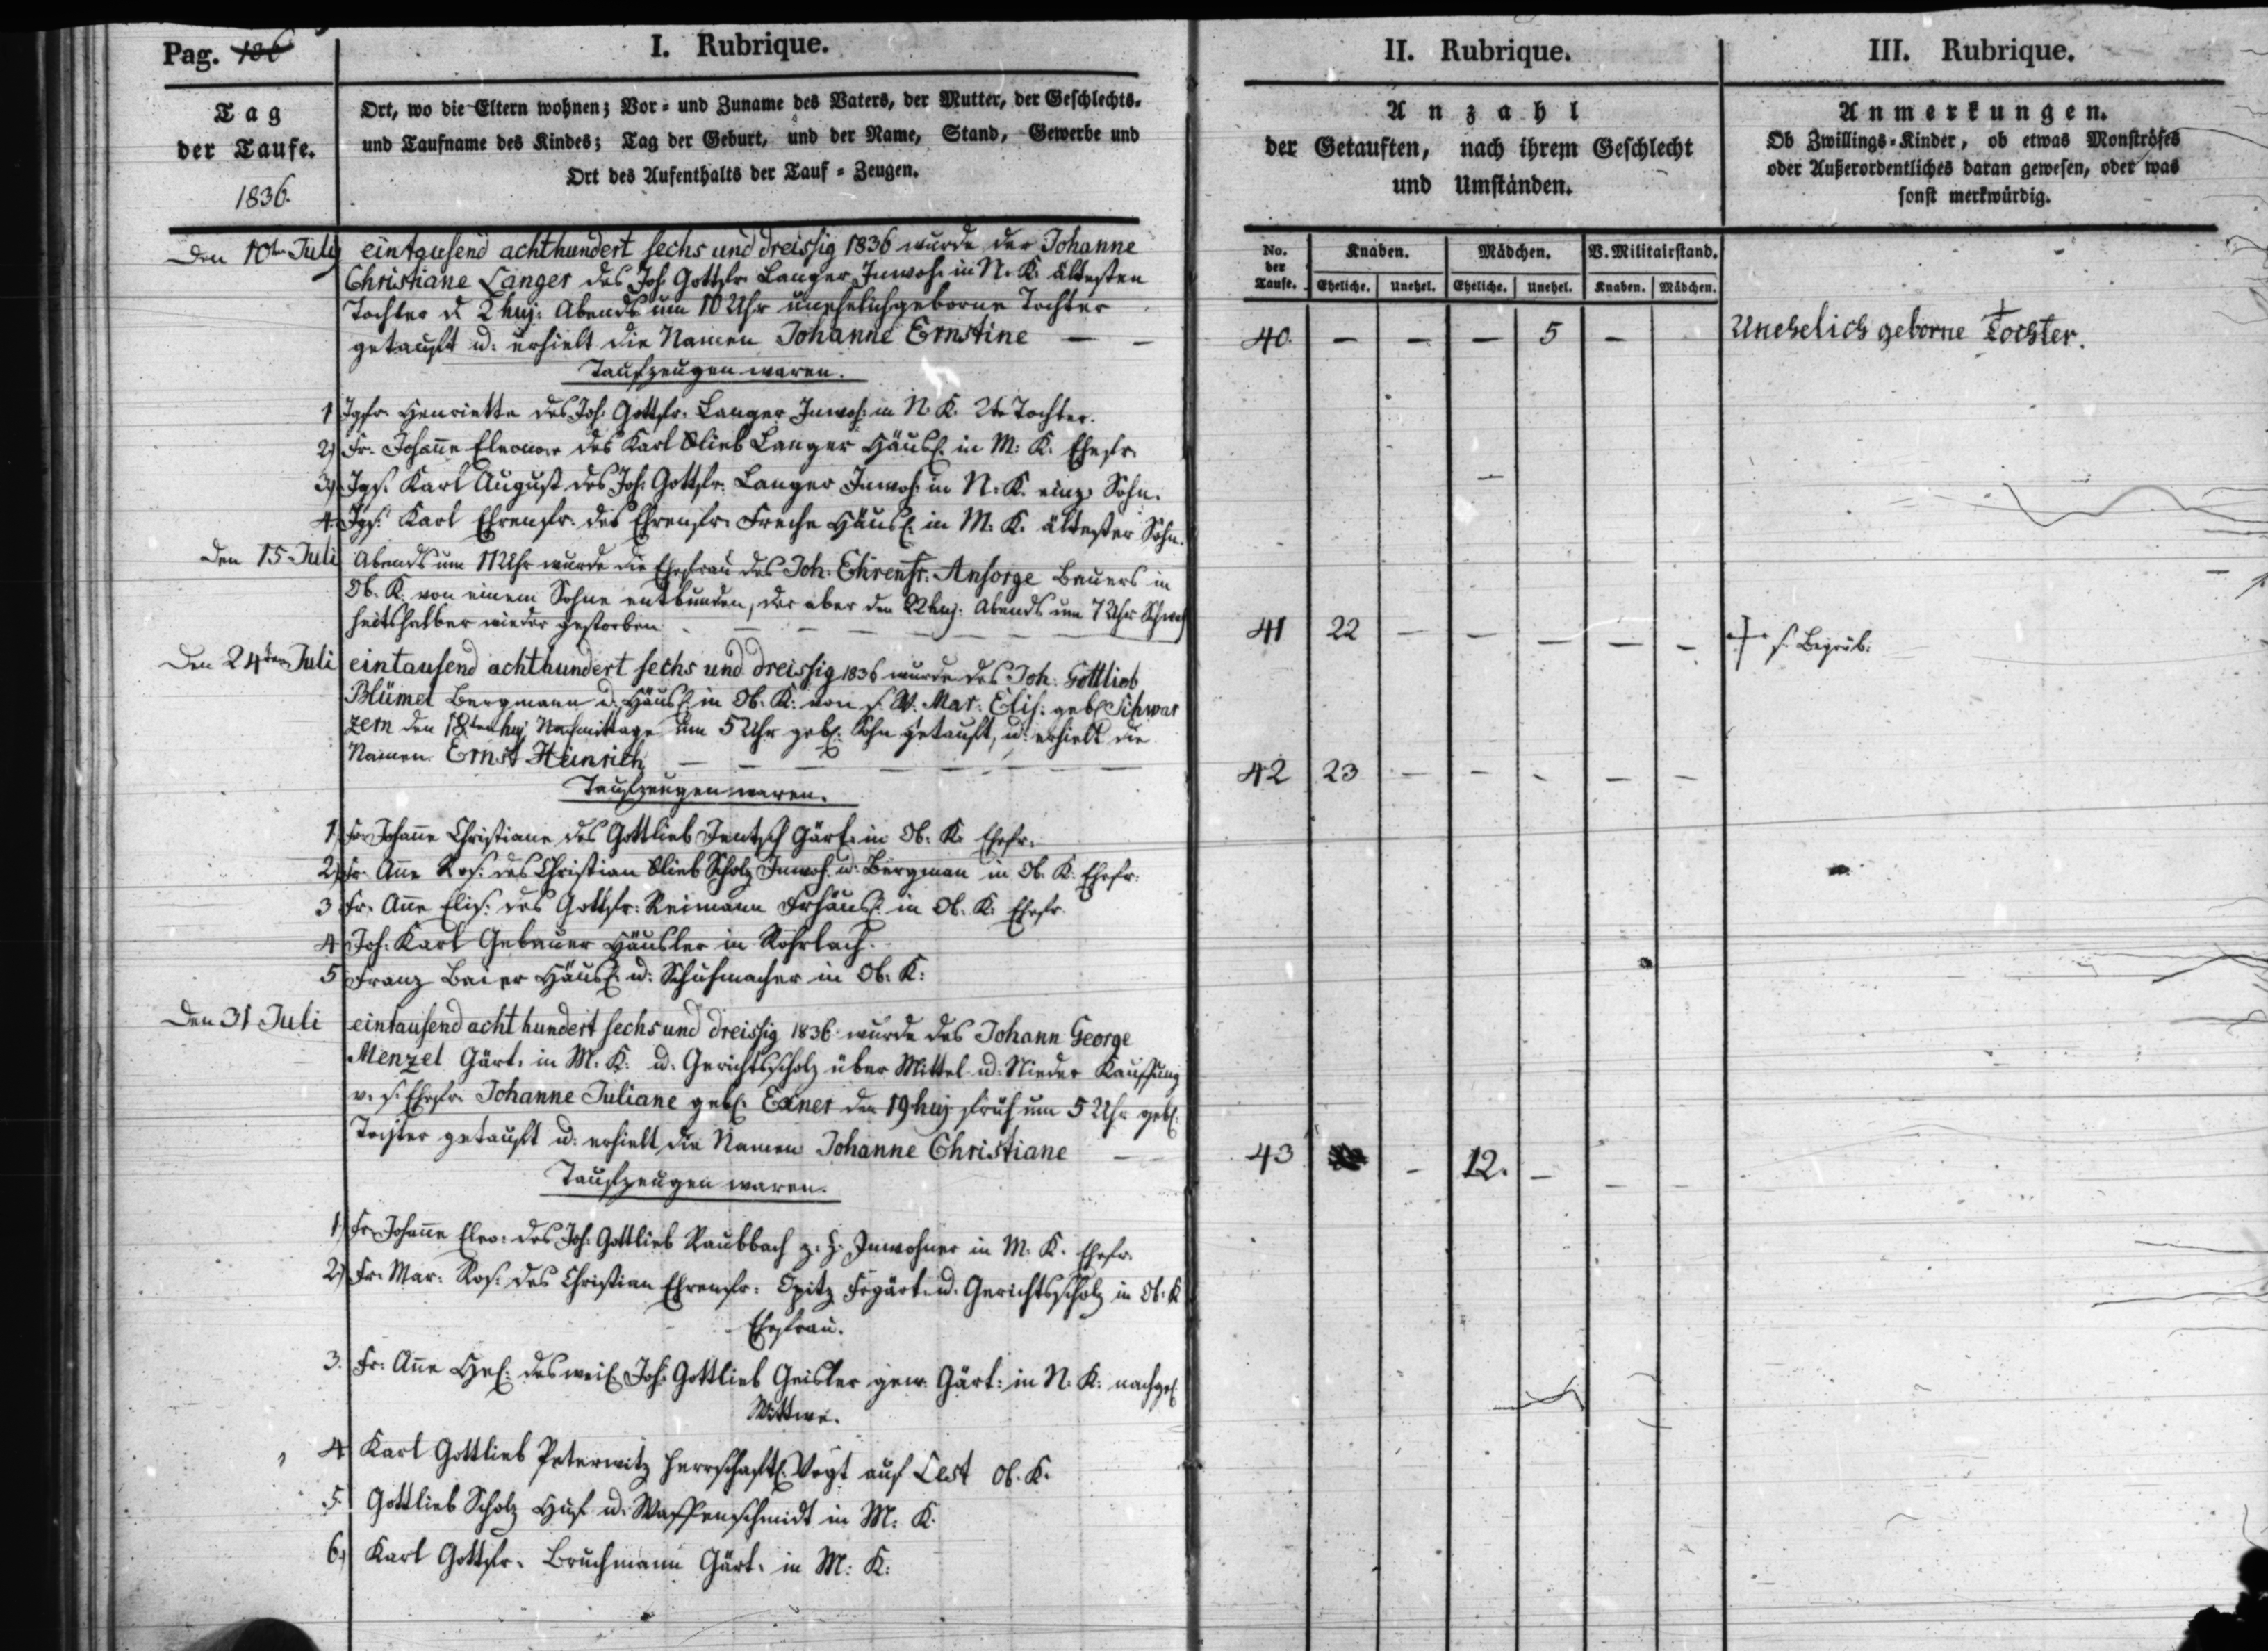 Pag. 186
I. Rubrique.
II. Rubrique.
III. Rubrique.
Tag
der Taufe.
1836.
Ort, wo die Eltern wohnen; Vor- und Zuname des Vaters, der Mutter, der Geschlechts-
und Taufname des Kindes; Tag der Geburt, und der Name, Stand, Gewerbe und
Ort des Aufenthalts der Tauf-Zeugen.
Anzahl
der Getauften, nach ihrem Geschlecht
und Umständen.
Anmerkungen.
Ob Zwillings-Kinder, ob etwas Monströses
oder Außerordentliches daran gewesen, oder was
sonst merkwürdig.
No. der Taufe.
Knaben.
Mädchen.
V. Militairstand.
Eheliche. Unehel. Eheliche. Unehel. Knaben. Mädchen.
Den 10ten July eintausend achthundert sechs und dreissig 1836 wurde der Johanne
Christiane Langer des Joh. Gottfr. Langer Inwoh. in N. K. ältesten
Tochter d. 2 huj. Abends um 10 Uhr unehelich geborne Tochter
getauft u. erhielt die Namen Johanne Ernstine — —
40. — — — 5 — Unehelich geborne Tochter.
Taufzeugen waren.
1 Jgfr. Henriette des Joh. Gottfr. Langer Inwoh. in N. K. 2te Tochter.
2) Fr. Johanne Eleonore des Karl Glieb Langer Häusl. in M. K. Ehefr.
3) Jgs. Karl August des Joh. Gottfr. Langer Inwoh. in N. K. einz. Sohn.
4. Jgs. Karl Ehrenfr. des Ehrenfr. Freche Häusl. in M. K. ältester Sohn.
Den 15 Juli Abends um 11 Uhr wurde die Ehefrau des Joh. Ehrenfr. Ansorge Bauers in
Ob. K. von einem Sohne entbunden, der aber den 22 huj. Abends um 7 Uhr Schwach
heitshalber wieder gestorben
41 22 — — — — — † s. Begräb.
Den 24ten Juli eintausend achthundert sechs und dreissig 1836 wurde des Joh. Gottlieb
Blümel Bergmann u. Häusl. in Ob. K. von s. W. Mar. Elis. geb. Schwar
zern den 18ten huj. Nachmittags um 5 Uhr geb. Sohn getauft, u. erhielt die
Namen Ernst Heinrich
42 23 — — — — —
Taufzeugen waren.
1. Fr. Johanne Christiane des Gottlieb Jentsch Gärt. in Ob. K. Ehefr.
2) Fr. Anne Ros. des Christian Glieb Scholz Inwoh. u. Bergman in Ob. K. Ehefr.
3 Fr. Anne Elis. des Gottfr. Reimann Frhäusl. in Ob. K. Ehefr.
4 Joh. Karl Gebauer Häusler in Rohrlach.
5 Franz Baier Häusl. u. Schuhmacher in Ob. K.
Den 31 Juli eintausend acht hundert sechs und dreissig 1836 wurde des Johann George
Menzel Gärt. in M. K. u. Gerichtsscholz über Mittel u. Nieder Kauffung
v. s. Ehefr. Johanne Juliane geb. Exner den 19 huj. früh um 5 Uhr geb.
Tochter getauft u. erhielt die Namen Johanne Christiane —
43 — 12. — — —
Taufzeugen waren.
1) Fr. Johanne Eleo. des Joh. Gottlieb Raubbach z. H. Inwohner in M. K. Ehefr.
2) Fr. Mar. Ros. des Christian Ehrenfr. Opitz Frgärt. u. Gerichtsscholz in Ob. K
Ehefrau.
3. Fr. Anne Hel. des weil. Joh. Gottlieb Geisler gew. Gärt. in N. K. nachgel.
Wittwe.
4 Karl Gottlieb Peterwitz herrschaftl. Vogt auf Lest Ob. K.
5. Gottlieb Scholz Huf u. Waffenschmidt in M. K.
6) Karl Gottfr. Bruchmann Gärt. in M. K.